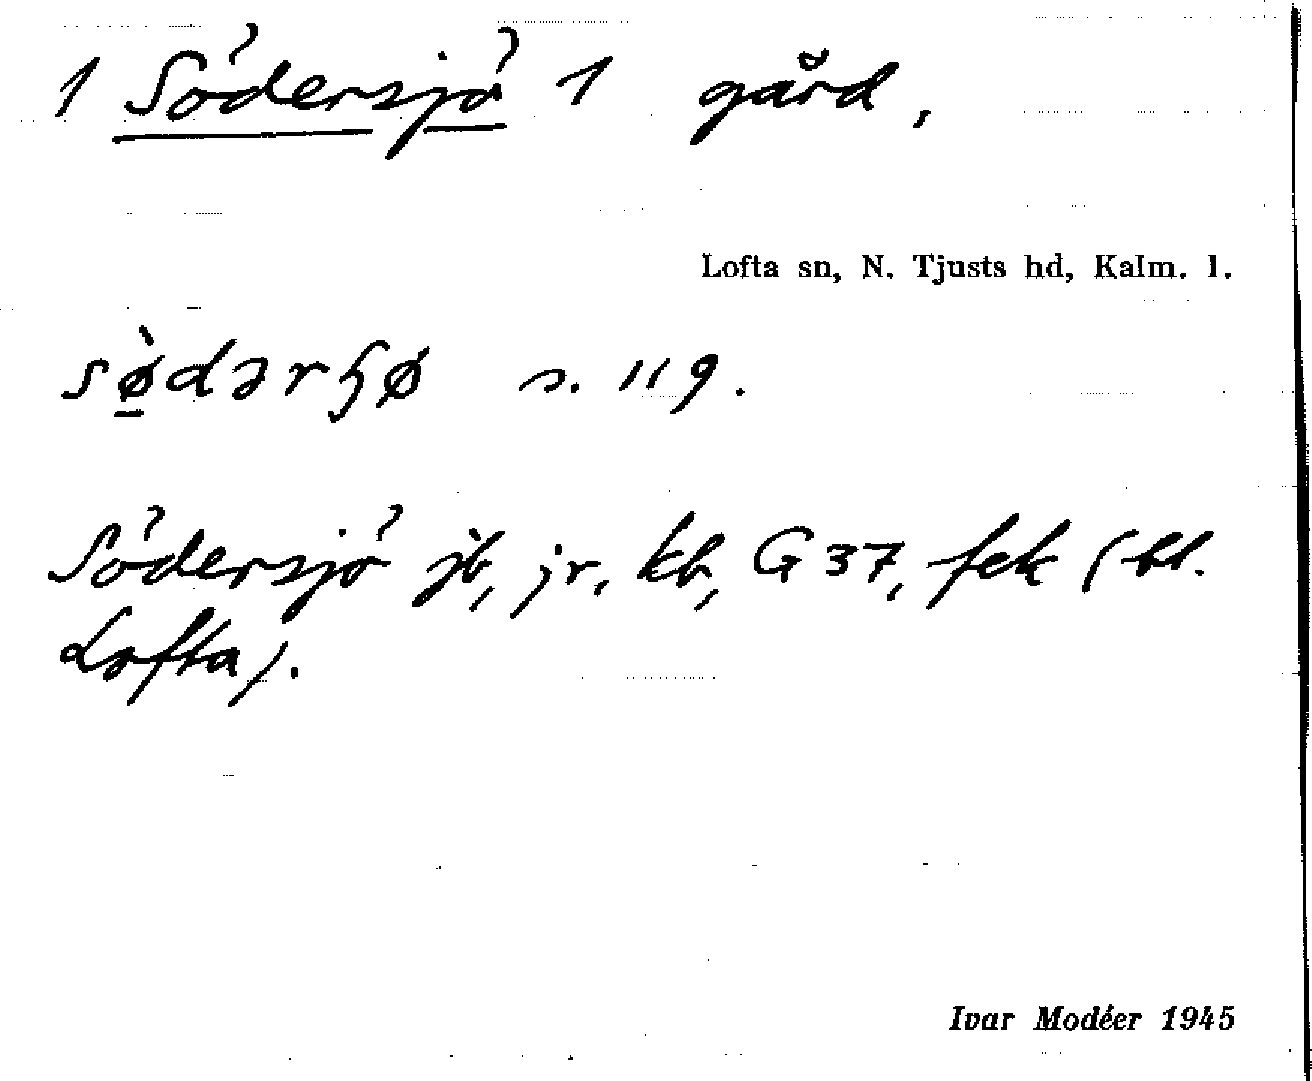 1 Södersjö 1 gård,
Lofta sn, N. Tjusts hd, Kalm. l.
sø̠̀dərɧø s. 119.
Södersjö jb, jr, kb, G 37, fek (bl.
Lofta).
Ivar Modéer 1945